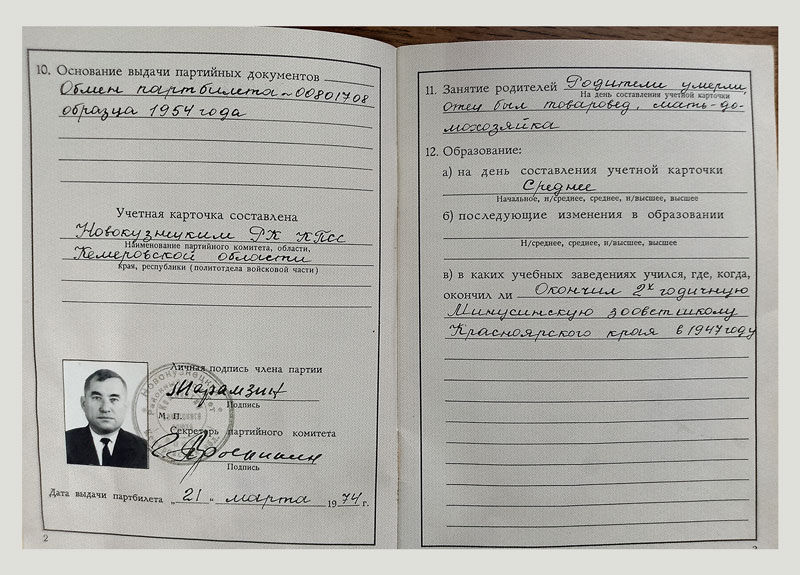 10. Основание выдачи партийных документов
Обмен партбилета № 00801708
образца 1954 года
Учетная карточка составлена
Новокузнецким РК КПСС
Наименование партийного комитета, области,
Кемеровской области
края, республики (политотдела войсковой части)
Личная подпись члена партии
Подпись
М. П.
Секретарь партийного комитета
Подпись
Дата выдачи партбилета „21" марта 1974 г.
2
11. Занятие родителей Родители умерли,
На день составления учетной карточки
отец был товаровед, мать-до-
мохозяйка
12. Образование:
а) на день составления учетной карточки
Среднее
Начальное, н/среднее, среднее, н/высшее, высшее
б) последующие изменения в образовании
Н/среднее, среднее, н/высшее, высшее
в) в каких учебных заведениях учился, где, когда,
окончил ли Окончил 2х годичную
Минусинскую зооветшколу
Красноярского края в 1947 году